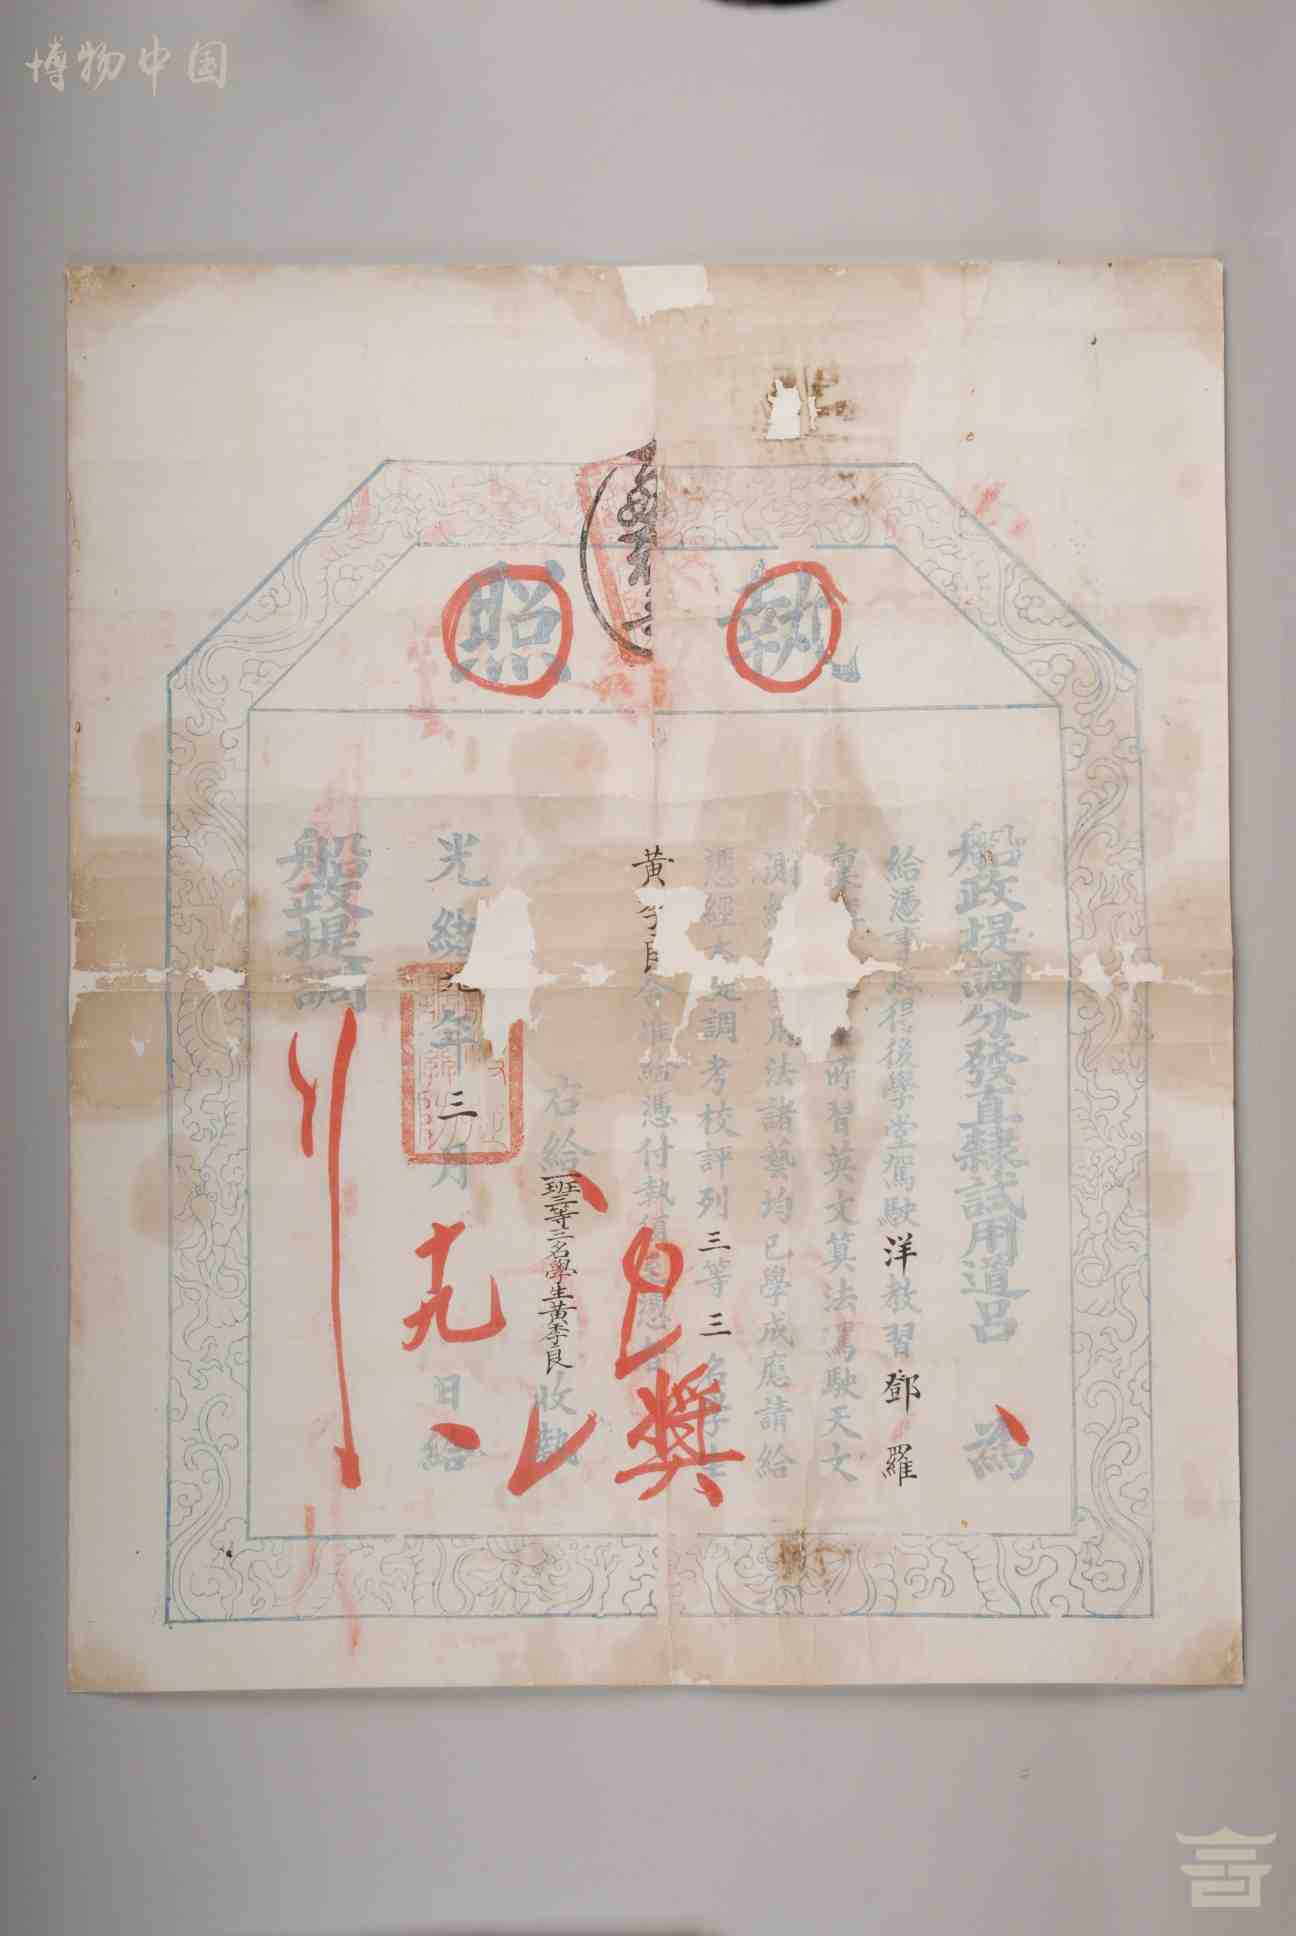 博物中国
執照
船政提調分發直隸試用道呂 為
給憑事照得後學堂駕駛洋教習鄧羅
稟 所習英文算法駕駛天文
測 用法諸藝均已學成應請給
憑經本提調考校評列三等三名學生
黃季良合准給憑付執須至憑者
右給一班三等三名學生黃季良收執
光緒九年三月十九日給
船政提調
獎